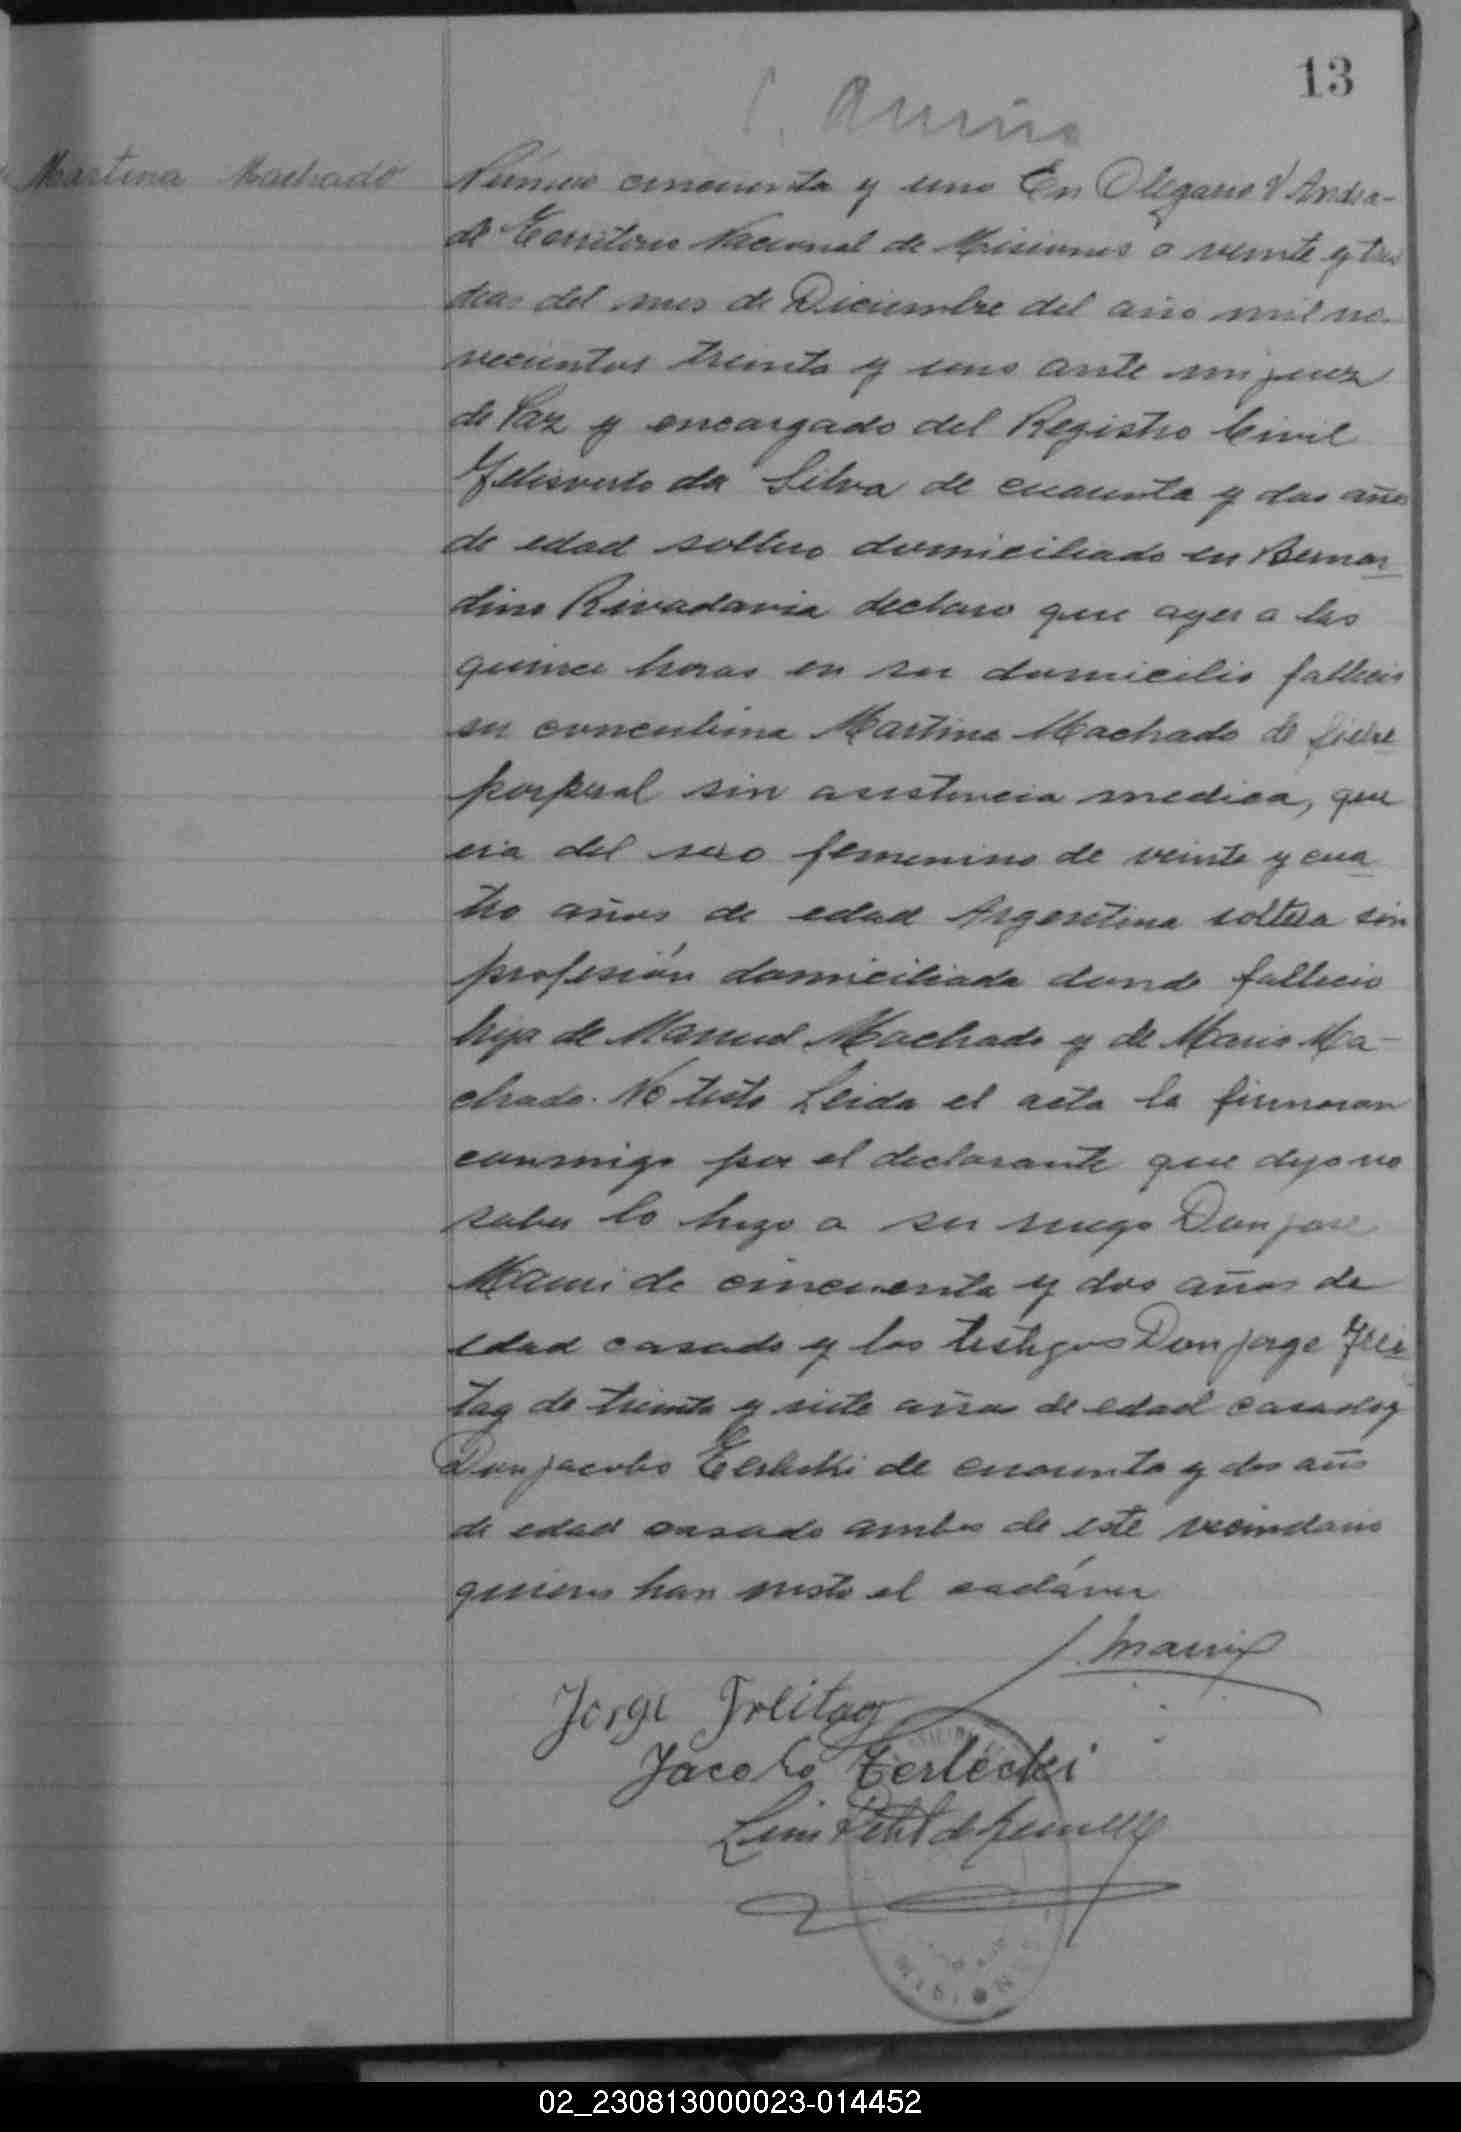 13
Martina Machado
Número cincuenta y uno En Olegario V Andra-
de Territorio Nacional de Misiones a veinte y tres
dias del mes de Diciembre del año mil no-
vecientos treinta y uno ante mi juez
de Paz y encargado del Registro Civil
da Silva de cuarenta y dos años
de edad soltero domiciliado en Bernar
dino Rivadavia declaro que ayer a las
quince horas en su domicilio fallecio
su concubina Martina Machado de fiebre
porperal sin asistencia medica, que
era del sexo femenino de veinte y cua
tro años de edad Argentina soltera sin
profesión domiciliada donde fallecio
hija de Manuel Machado y de Maria Ma-
chado. No testo Leida el acta la firmaron
conmigo por el declarante que dijo no
saber lo hizo a su ruego Don jose
Mauri de cincuenta y dos años de
edad casado y los testigos Don jorge Frei
tag de treinta y siete años de edad casado y
Don jacobo Terlecki de cuarenta y dos años
de edad casado ambos de este vecindario
quienes han visto el cadáver
J. Mauri
Jorge Freitag
Jacobo Terlecki
Luis
MISIONES
02_230813000023-014452